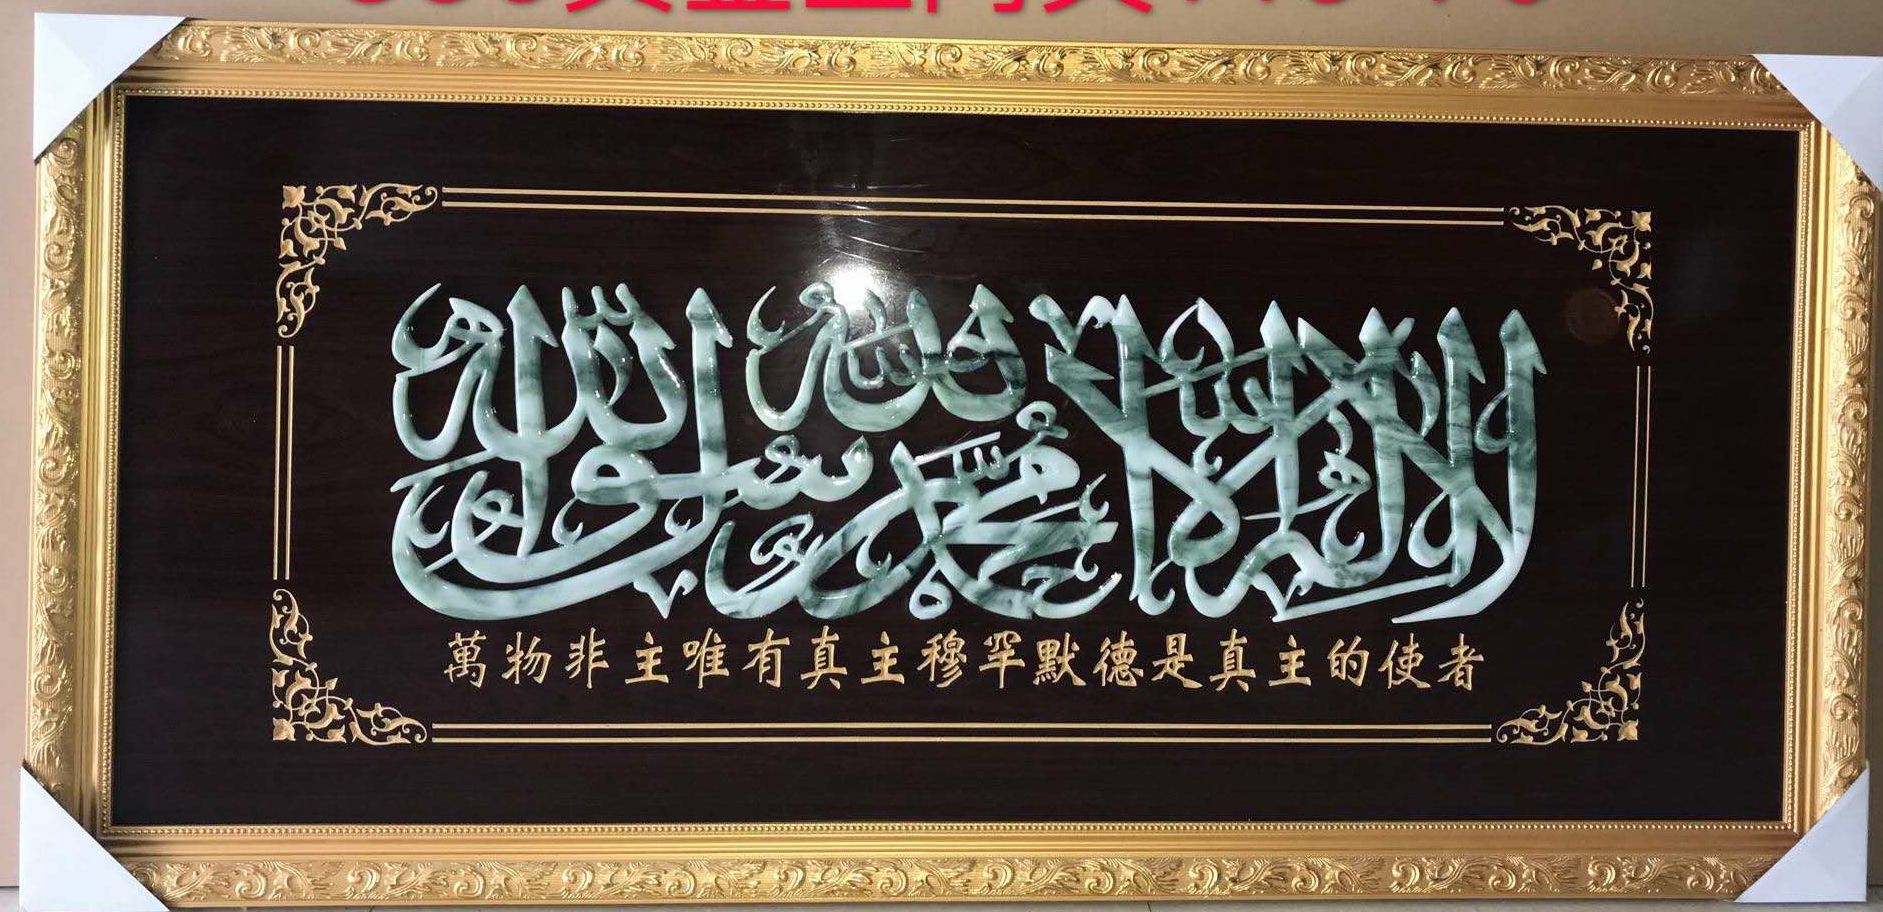 لا إله إلا الله محمد رسول الله
萬物非主唯有真主穆罕默德是真主的使者